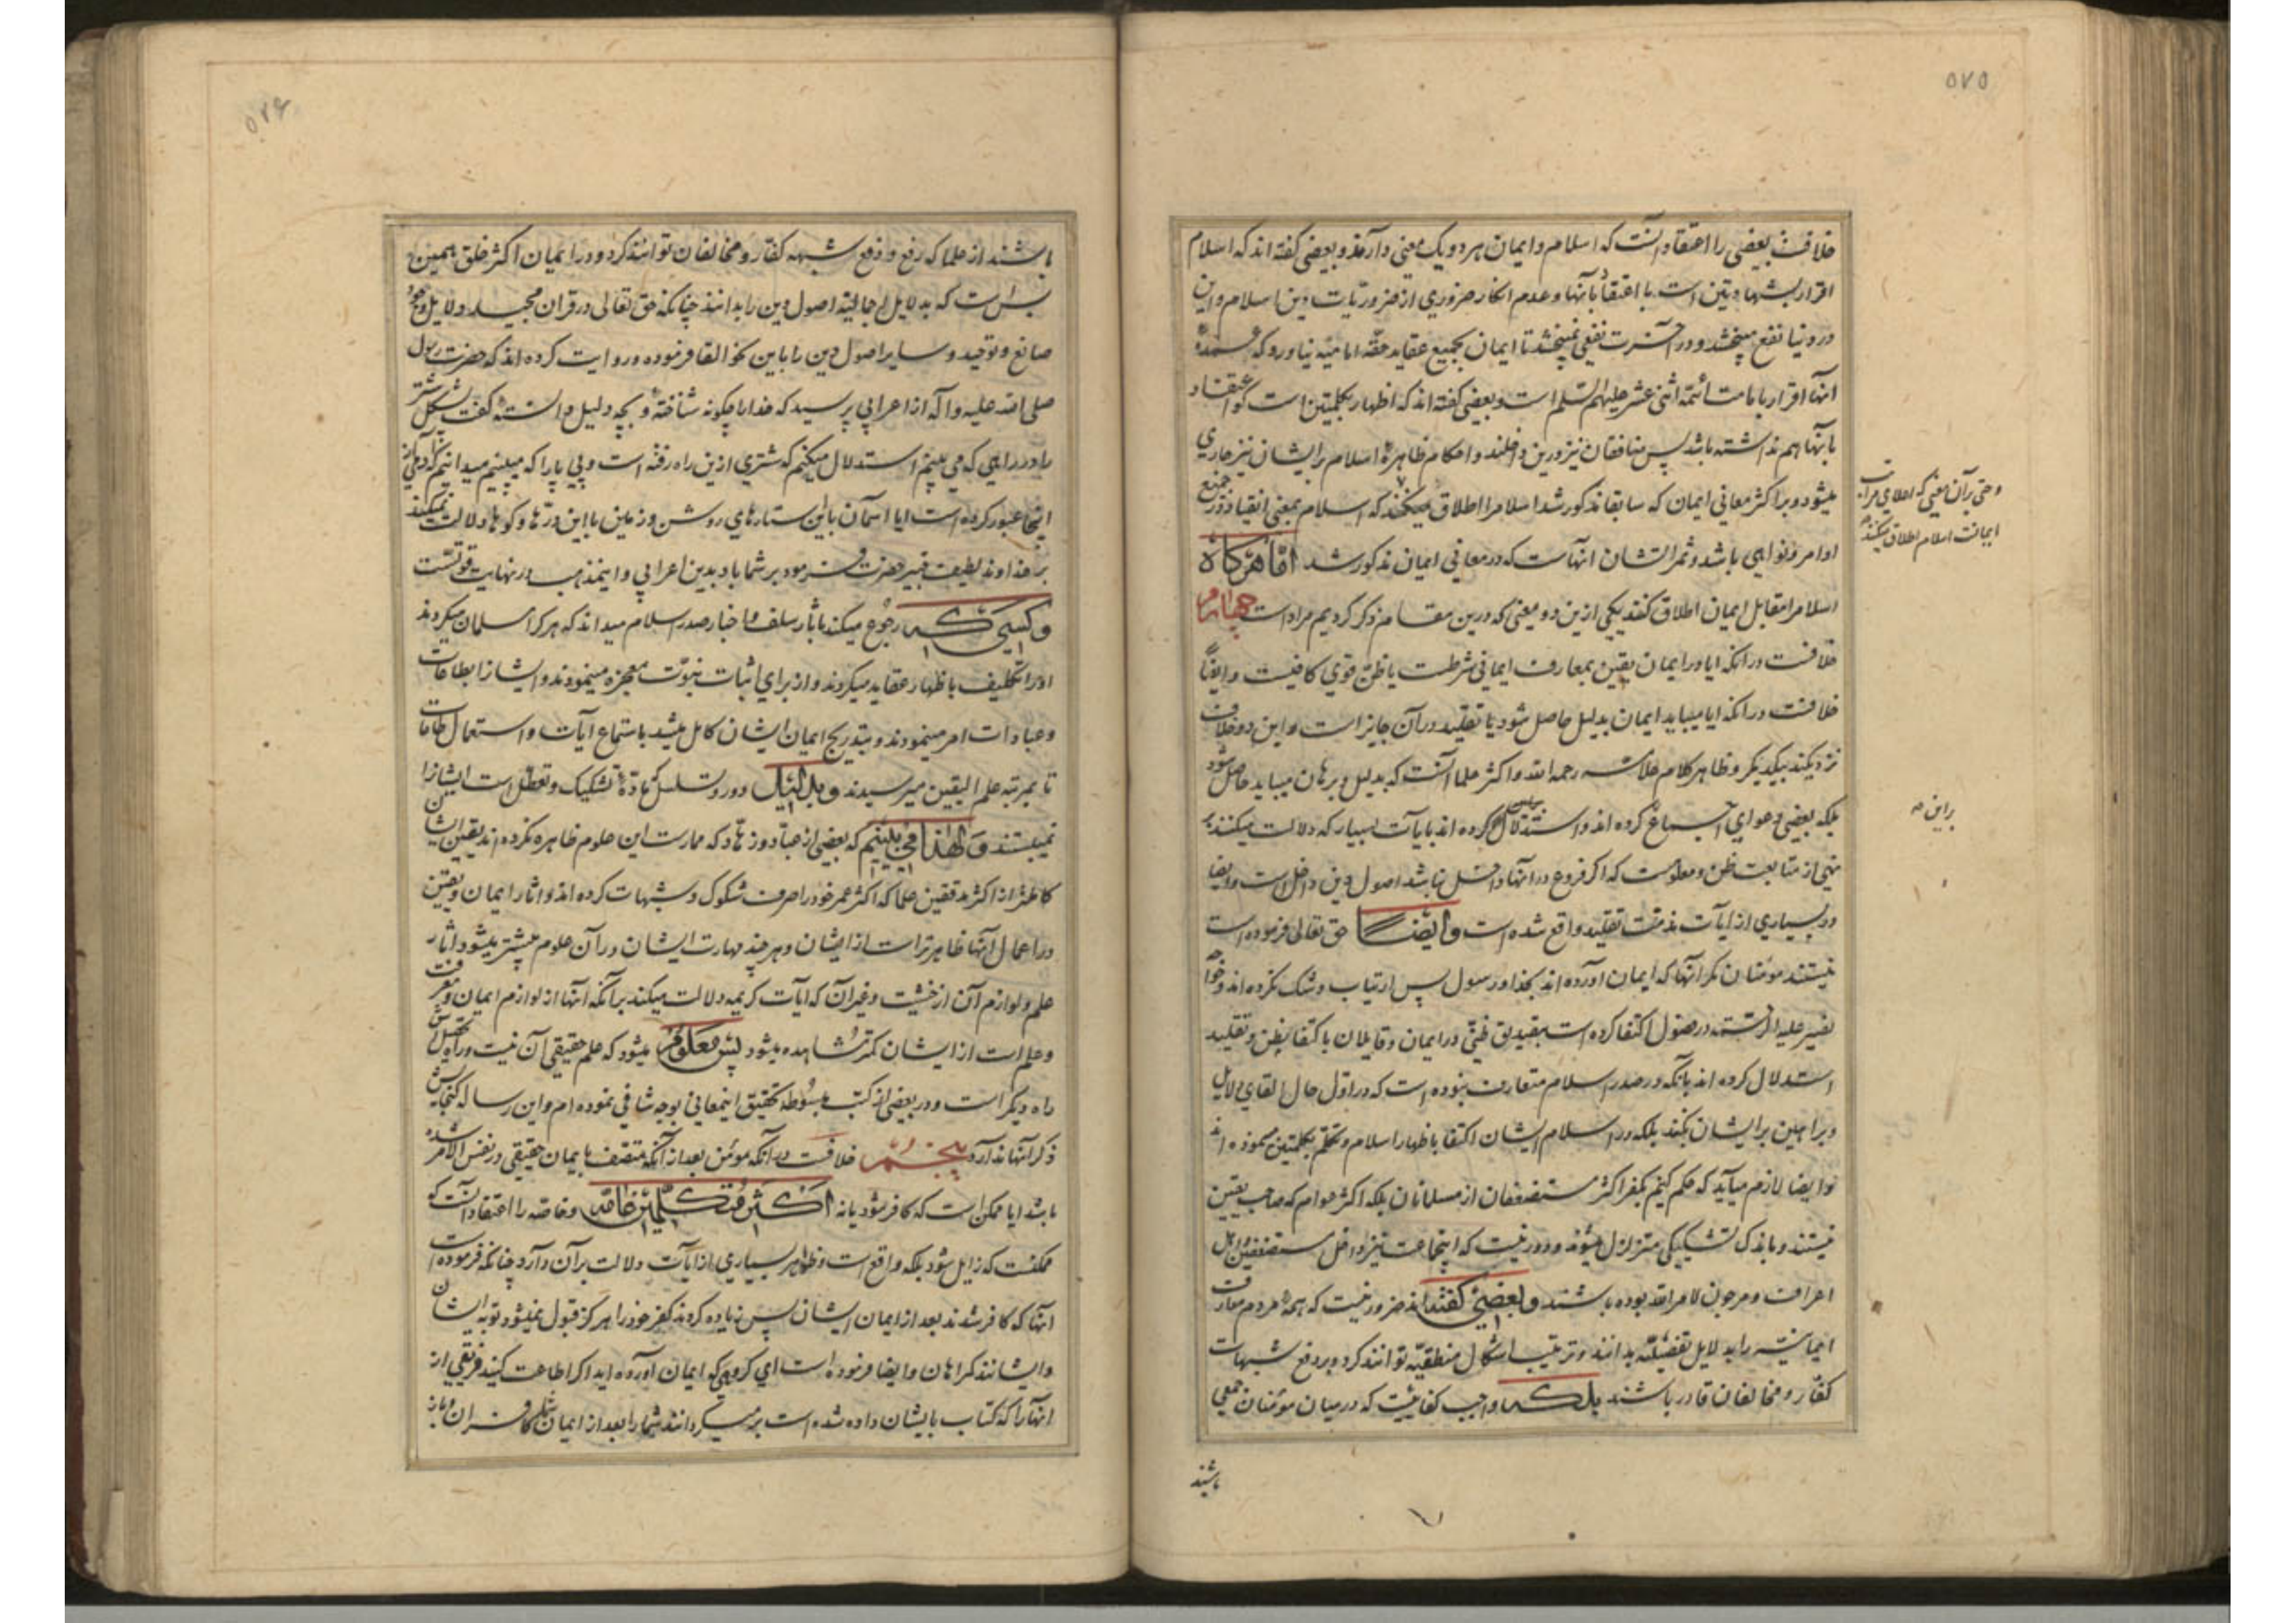 ۵۷۵
خلافست بعضی را اعتقاد آنست که اسلام و ایمان هر دو یک معنی دارند و بعضی گفته اند که اسلام
اقرار بشهادتین است با اعتقاد بآنها و عدم انکار ضروری از ضروریات دین اسلام و این
در دنیا نفع میبخشد و در آخرت نفعی نمیبخشد تا ایمان بجمیع عقاید حقه امامیه نیاورد که عمده
آنها اقرار بامامت ائمه اثنی عشر علیهم السلم است و بعضی گفته اند که اظهار بکلمتین است گو اعتقاد
بآنها هم نداشته باشد پس منافقان نیز درین داخلند و احکام ظاهره اسلام بر ایشان نیز جاری
میشود و بر اکثر معانی ایمان که سابقا مذکور شد اسلام را اطلاق میکنند که اسلام بمعنی انقیاد در جمیع
اوامر و نواهی باشد و ثمراتشان آنهاست که در معانی ایمان مذکور شد اما هرگاه
اسلام را مقابل ایمان اطلاق کنند یکی ازین دو معنی که درین مقام ذکر کردیم مراد است چهارم
خلافست در آنکه ایا در ایمان یقین بمعارف ایمانی شرطست یا ظن قوی کافیست و ایضاً
خلافست در آنکه ایا میباید ایمان بدلیل حاصل شود یا تقلید در آن جایز است و این دو خلاف
نزدیکند بیکدیگر و ظاهر کلام علامه رحمه الله و اکثر علما آنست که بدلیل و برهان میباید حاصل شود
بلکه بعضی دعوای اجماع کرده اند و استدلال کرده اند بایات بسیار که دلالت میکنند بر
نهی از متابعت ظن و معلومست که اگر فروع در آنها داخل نباشد اصول دین داخل است و ایضا
در بسیاری از ایات مذمت تقلید واقع شده است و ایضا حق تعالی فرموده است
نیستند مؤمنان مگر آنها که ایمان آورده اند بخدا و رسول پس ارتیاب و شک نکرده اند و خواجه
نصیر علیه الرحمه در فصول اکتفا کرده است بتصدیق ظنی در ایمان و قایلان باکتفا بظن و تقلید
استدلال کرده اند بآنکه در صدر اسلام متعارف نبوده است که در اول حال القای دلایل
و براهین بر ایشان بکنند بلکه در اسلام ایشان اکتفا باظهار اسلام و تکلم بکلمتین مینموده اند
و ایضا لازم میآید که حکم کنیم بکفر اکثر مستضعفان از مسلمانان بلکه اکثر عوام که صاحب یقین
نیستند و باندک تشکیکی متزلزل میشوند و دور نیست که اینجماعت نیز داخل مستضعفین و اهل
اعراف و مرجون لامر الله بوده باشند و بعضی گفته اند ضرور نیست که همه مردم معارف
ایمانیه را بدلایل تفصیلیه بدانند و ترتیب اشکال منطقیه توانند کرد و بر دفع شبهات
کفار و مخالفان قادر باشند بلکه واجب کفاییست که در میان مؤمنان جمعی
باشند
و حتی بر آن معنی که اعلای مراتب
ایمانست اسلام اطلاق میکنند
براین
۵۷۶
باشند از علما که رفع و دفع شبهه کفار و مخالفان توانند کرد و در ایمان اکثر خلق همین
بس است که بدلایل اجمالیه اصول دین را بدانند چنانکه حق تعالی در قران مجید دلایل وجود
صانع و توحید و سایر اصول دین را باین نحو القا فرموده و روایت کرده اند که حضرت رسول
صلی الله علیه و آله از اعرابی پرسید که خدا را چگونه شناخته و بچه دلیل دانسته گفت پشکل شتر
را در راهی که می بینم استدلال میکنم که شتری ازین راه رفته است و پی پا را که میبینیم میدانیم که آدمی از
اینجا عبور کرده است ایا آسمان باین ستارهای روشن و زمین با این درّها و کوهها دلالت نمیکند
بر خداوند لطیف خبیر حضرت فرمود بر شما باد بدین اعرابی و اینمذهب در نهایت قوتست
و کسی که رجوع میکند بآثار سلف و اخبار صدر اسلام میداند که هر کرا مسلمان میکردند
او را تکلیف باظهار عقاید میکردند و از برای اثبات نبوت معجزه مینمودند و ایشانرا بطاعات
و عبادات امر مینمودند و بتدریج ایمان ایشان کامل میشد باستماع ایات و استعمال طاعات
تا بمرتبه علم الیقین میرسیدند و بدلیل دور و تسلسل که مادّه تشکیک و تعطل است ایشانرا
نمیبستند و لهذا می بینیم که بعضی از عباد و زهاد که ممارست این علوم ظاهره نکرده اند یقین ایشان
کاملتر از اکثر مدققین علما که اکثر عمر خود را صرف شکوک و شبهات کرده اند و اثار ایمان و یقین
در اعمال آنها ظاهرتر است از ایشان و هر چند مهارت ایشان در آن علوم بیشتر میشود اثار
علم و لوازم آن از خشیت و غیر آن که ایات کریمه دلالت میکند بر آنکه آنها از لوازم ایمان و معرفت
و علم است از ایشان کمتر مشاهده میشود پس معلوم میشود که علم حقیقی آن نیست و راه تحصیلش
راه دیگر است و در بعضی از کتب مبسوطه تحقیق اینمعانی بوجه شافی نموده ام و این رساله گنجایش
ذکر آنها ندارد پنجم خلافست در آنکه مؤمن بعد از آنکه متصف بایمان حقیقی در نفس الامر شده
باشد ایا ممکن است که کافر شود یا نه اکثر متکلمین خاصه و عامه را اعتقاد آنست که
ممکنست که زایل شود بلکه واقع است و ظواهر بسیاری از ایات دلالت بر آن دارد چنانکه فرموده است
آنها که کافر شدند بعد از ایمان ایشان پس زیاده کردند کفر خود را هرگز قبول نمیشود توبه ایشان
و ایشانند گمراهان و ایضا فرموده است ای گروهی که ایمان آورده اید اگر اطاعت کنید فریقی از
آنها را که کتاب بایشان داده شده است برمیگردانند شما را بعد از ایمان شما کافران و باز